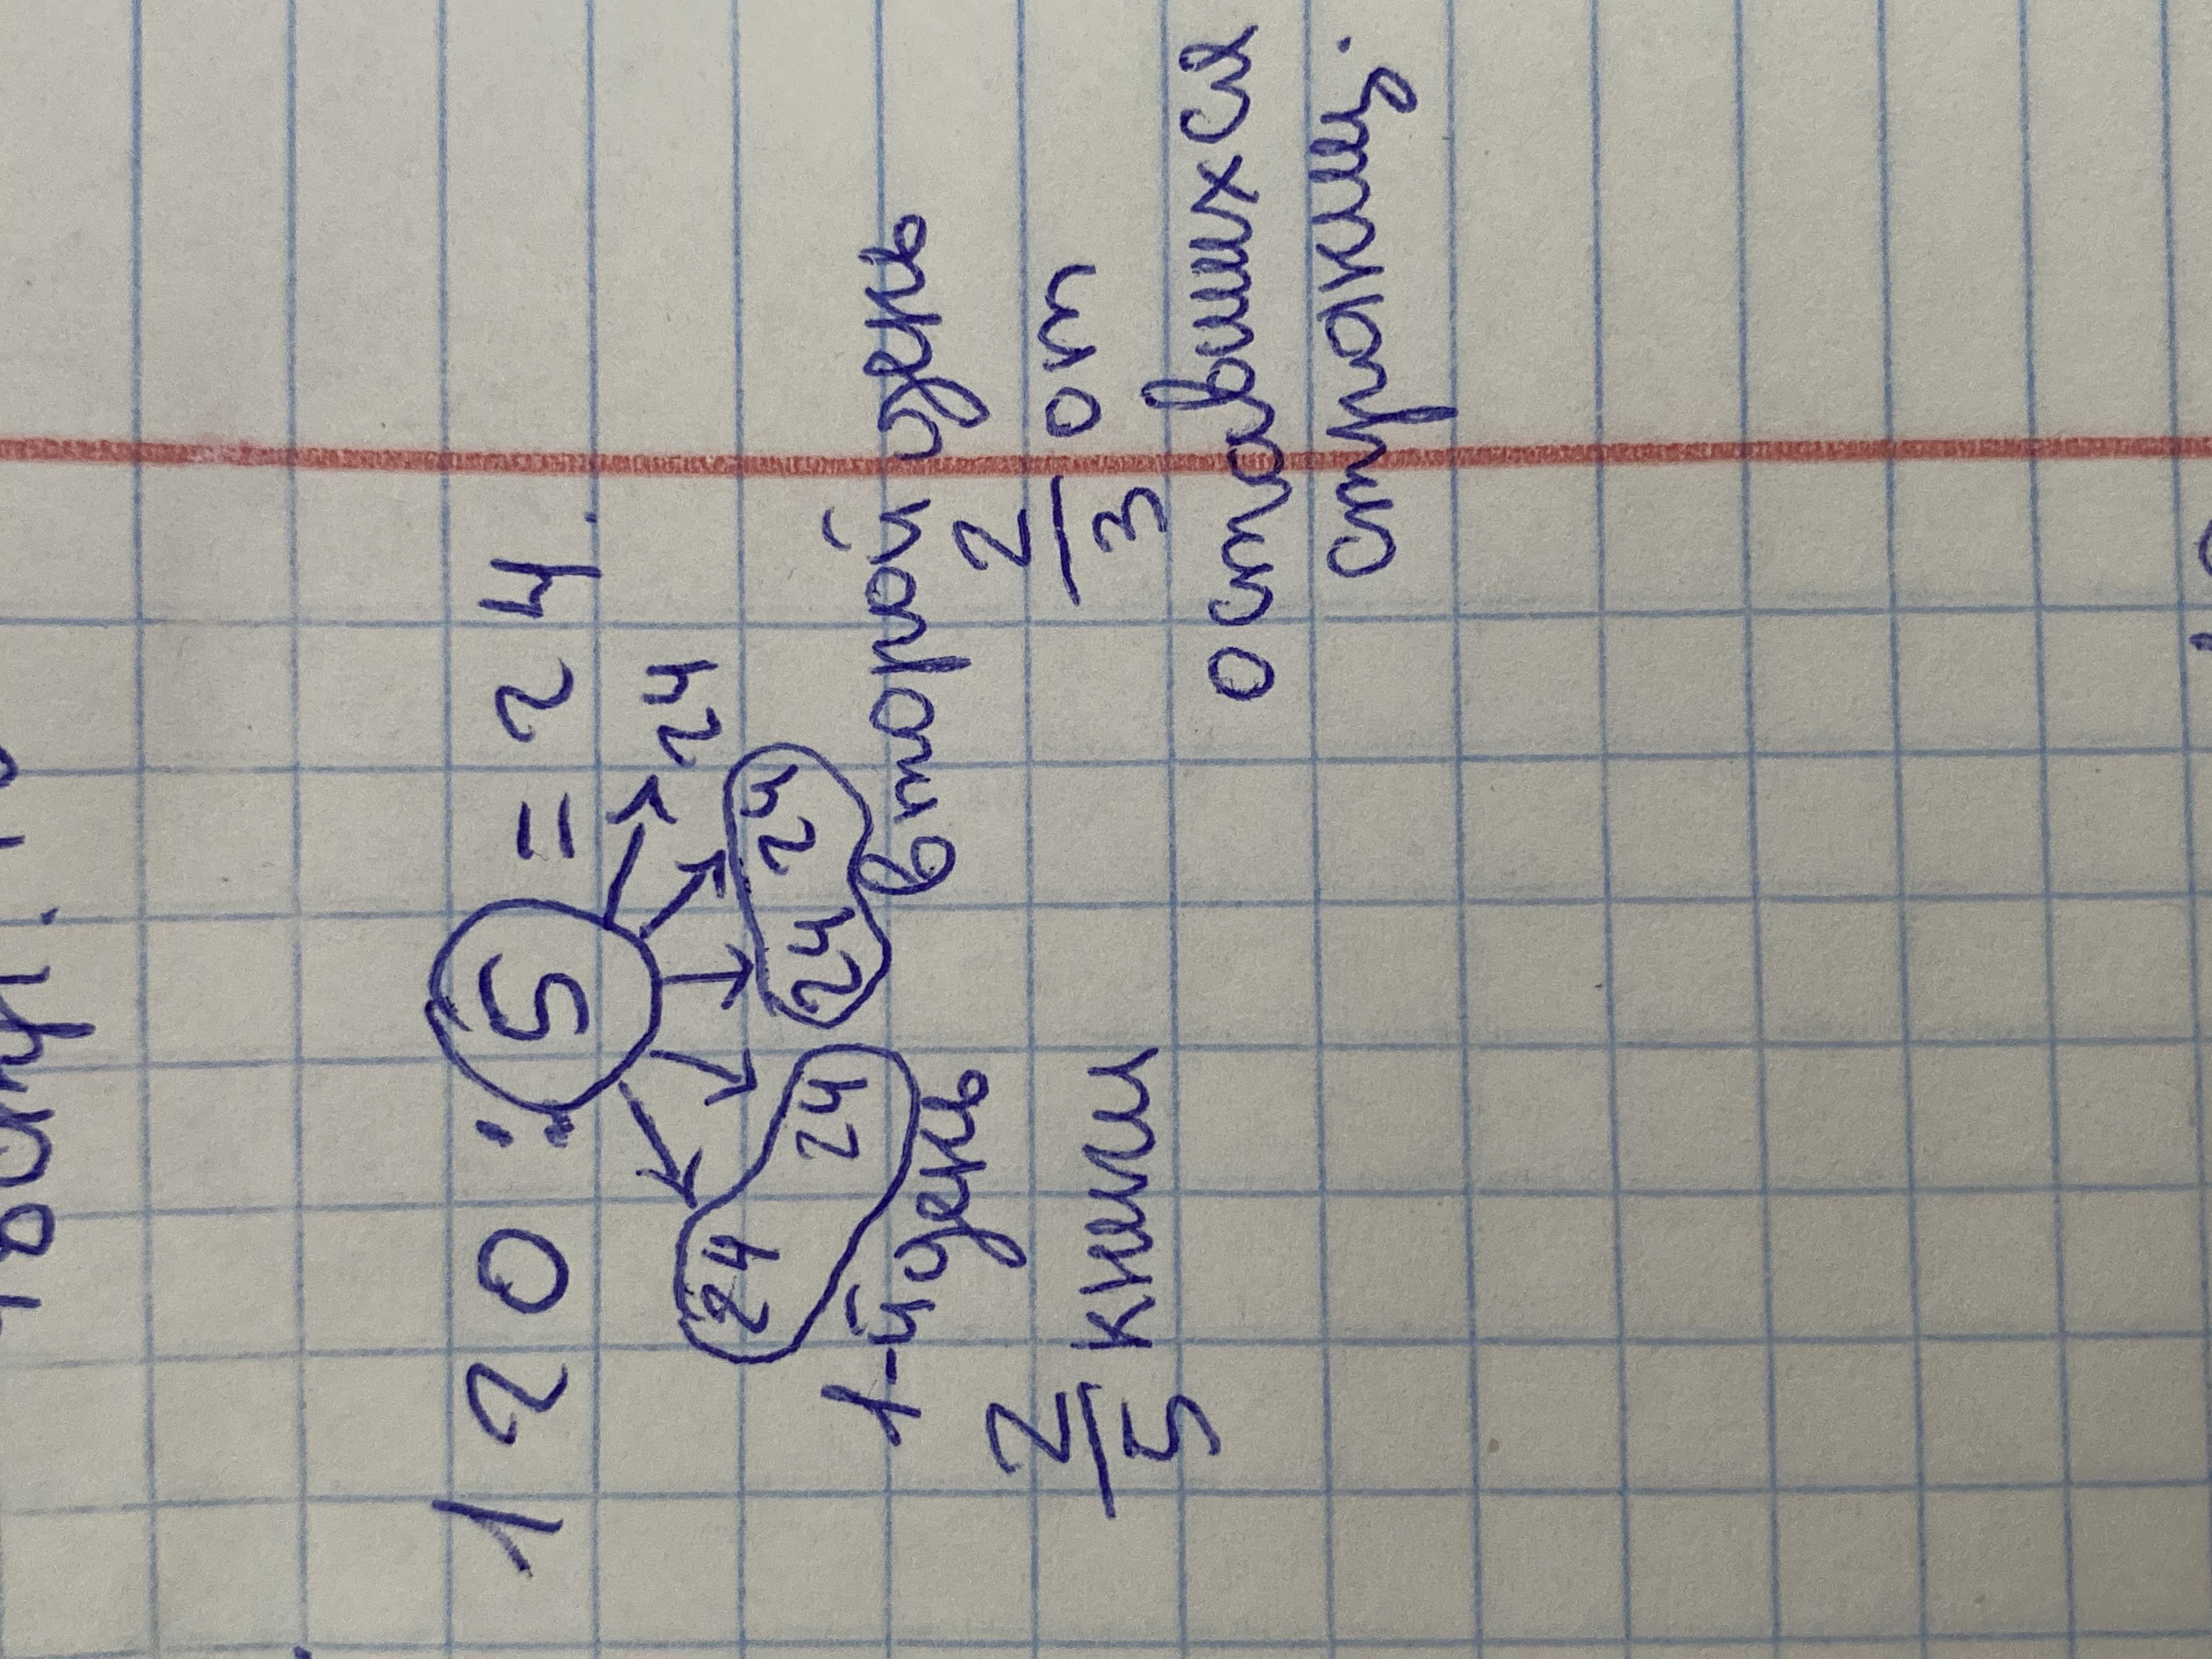 120 : 5 = 24.
24 24 24 24 24
1-й день второй день
2/5 книги 2/3 от
оставшихся
страниц.